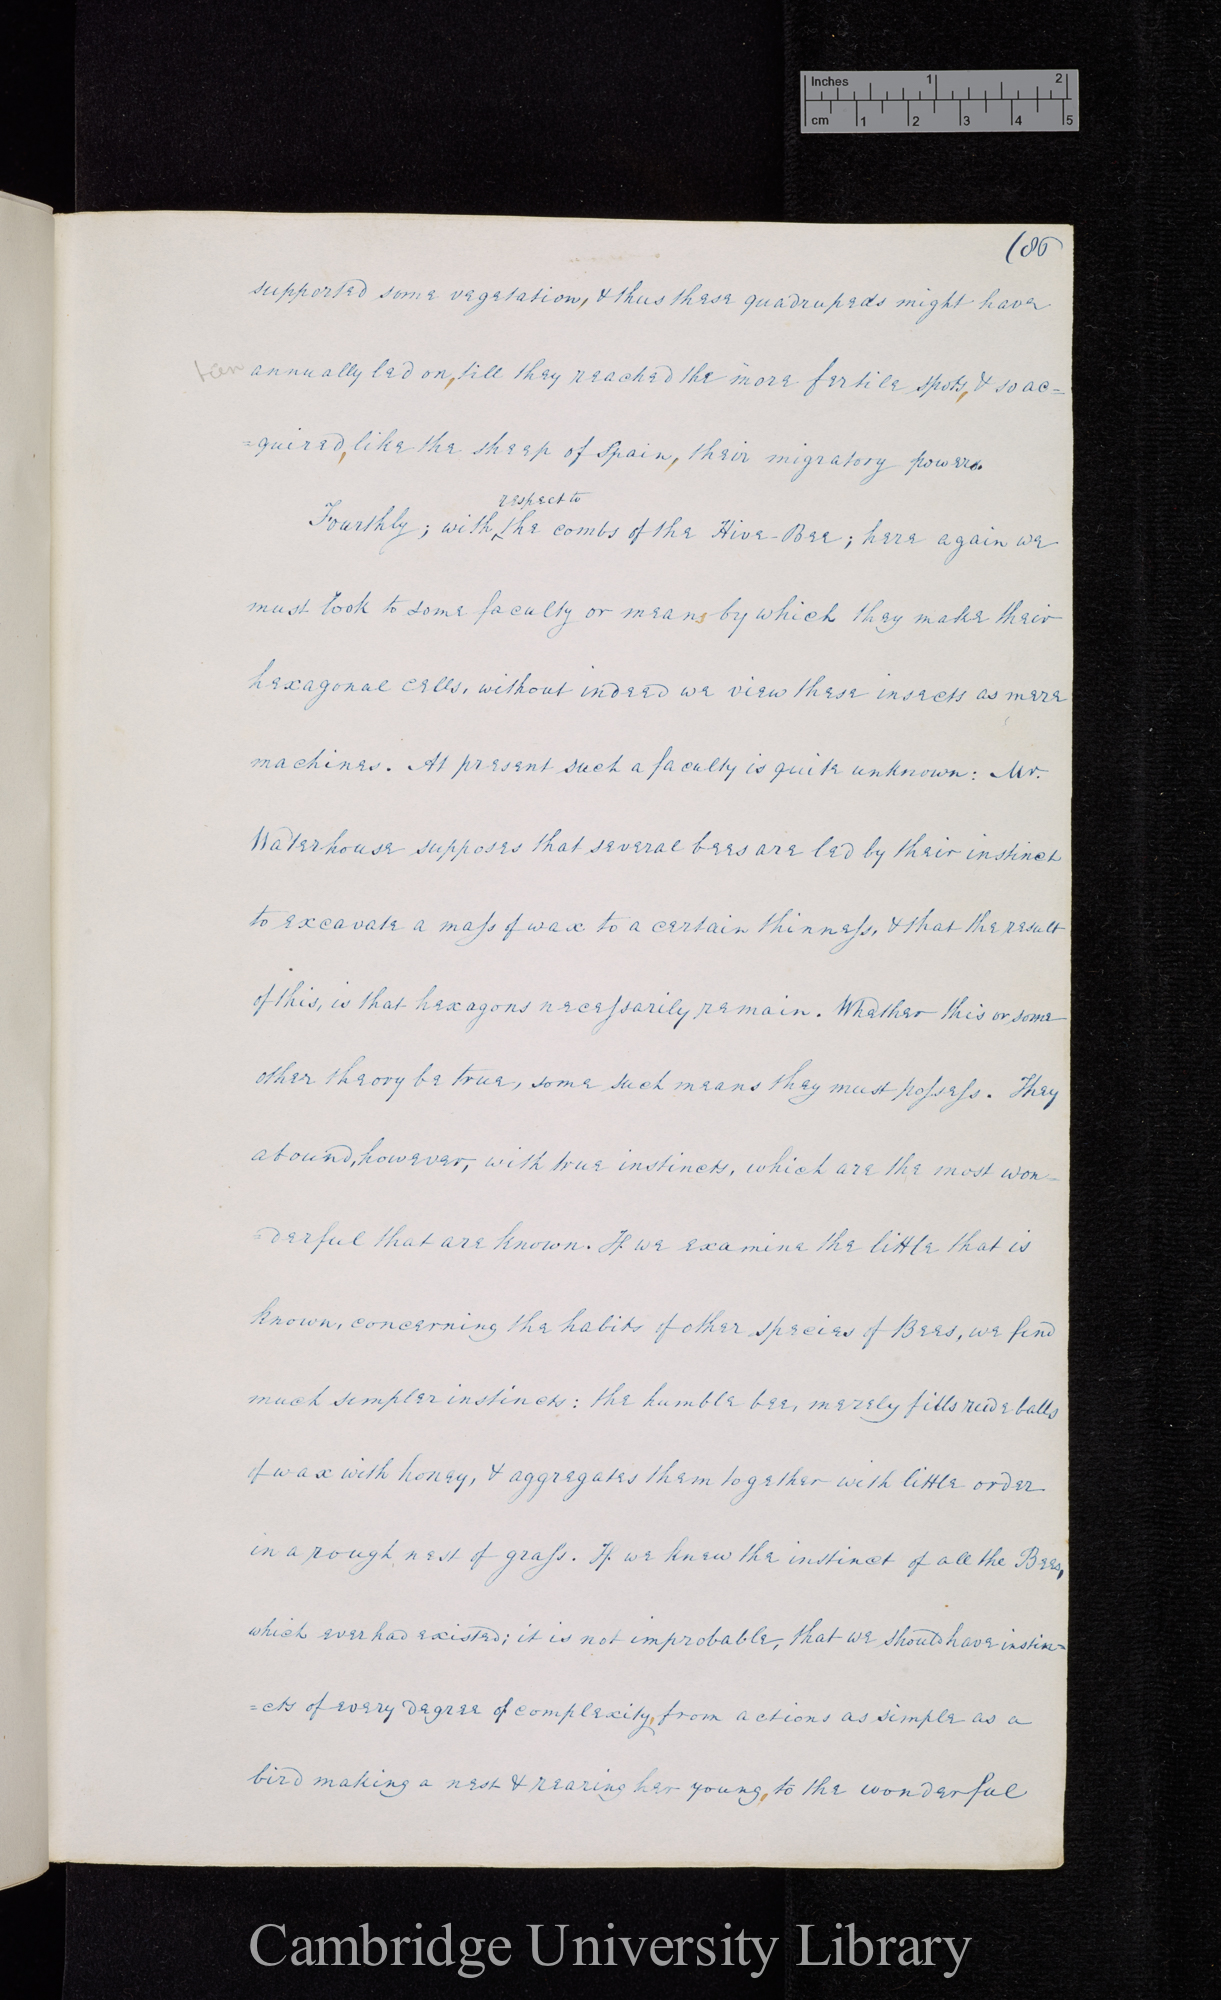 Inches 1 2
cm 1 2 3 4 5
186
supported some vegetation, & thus these quadrupeds might have
annually led on, till they reached the more fertile spots, & so ac=
=quired, like the sheep of Spain, their migratory powers.
respect to
Fourthly; with the combs of the Hive-Bee; here again we
must look to some faculty or means by which they make their
hexagonal cells, without indeed we view these insects as mere
machines. At present such a faculty is quite unknown: Mr.
Waterhouse supposes that several bees are led by their instinct
to excavate a maſs of wax to a certain thinneſs, & that the result
of this, is that hexagons neceſsarily remain. Whether this or some
other theory be true, some such means they must poſseſs. They
abound, however, with true instincts, which are the most won=
=derful that are known. If we examine the little that is
known, concerning the habits of other species of Bees, we find
much simpler instincts: the humble bee, merely fills rude balls
of wax with honey, & aggregates them together with little order
in a rough nest of graſs. If we knew the instinct of all the Bees,
which ever had existed; it is not improbable, that we should have instin=
=cts of every degree of complexity, from actions as simple as a
bird making a nest & rearing her young, to the wonderful
Cambridge University Library